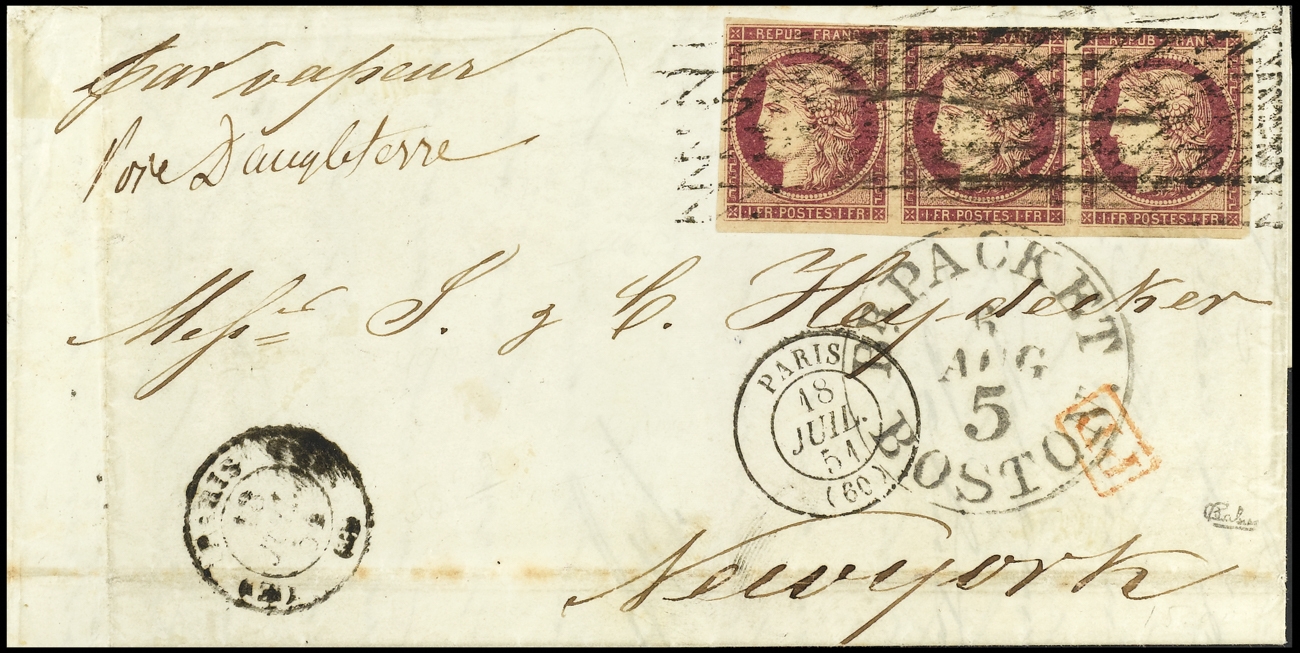 par vapeur
Voie D'angleterre
REPUB. FRANC.
1·FR·POSTES·1·FR
REPUB. FRANC.
1·FR·POSTES·1·FR
REPUB FRANC.
1·FR·POSTES·1·FR
Messrs J. & C. Heydecker
Newyork
BR. PACKET
5
AUG
BOSTON
PARIS
18
JUIL.
51
(60)
PARIS